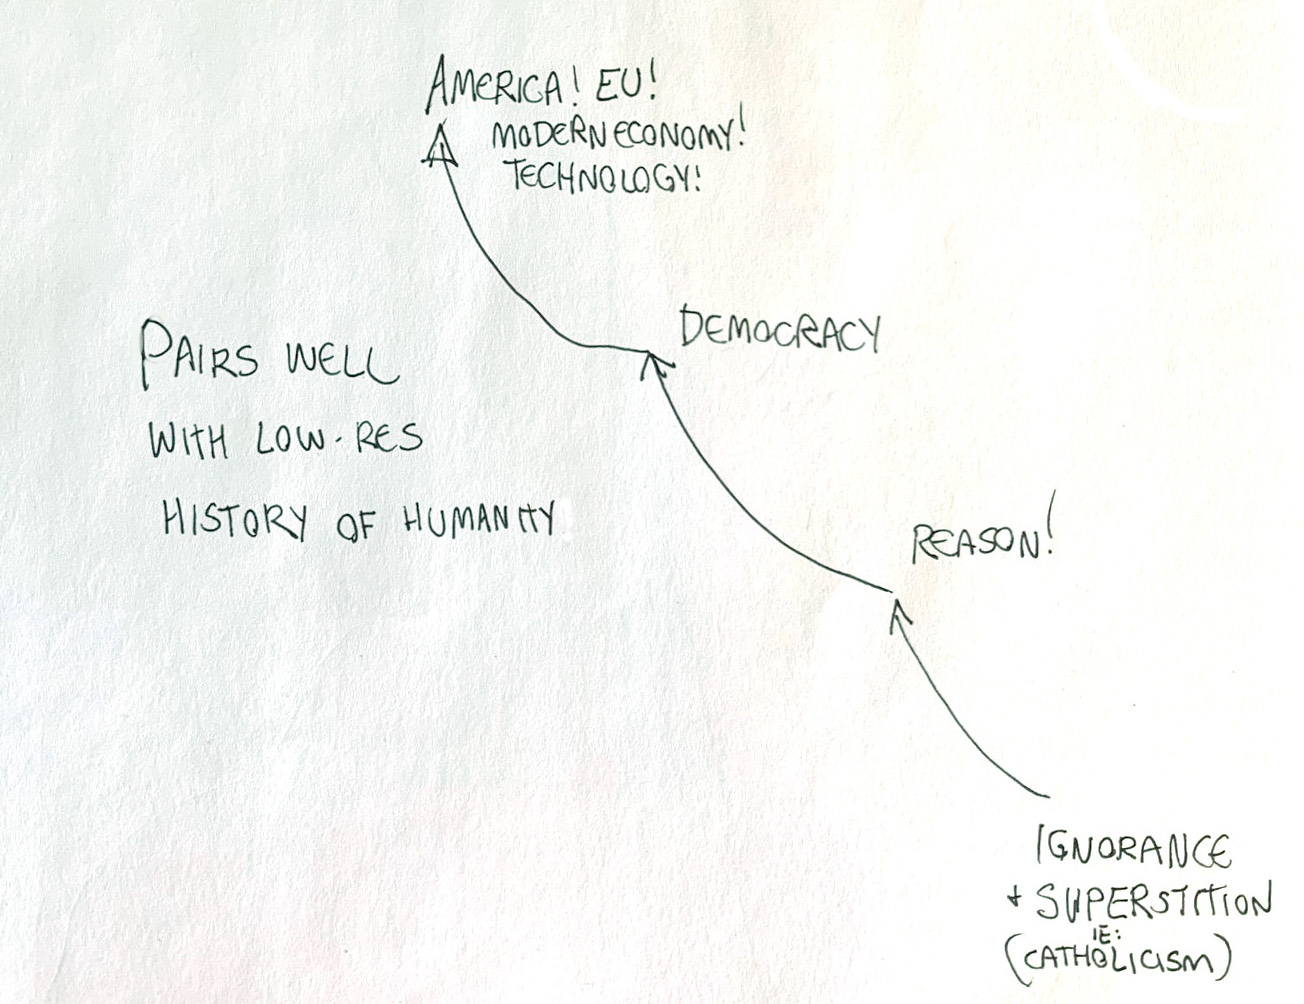 AMERICA! EU!
MODERN ECONOMY!
TECHNOLOGY!
DEMOCRACY
PAIRS WELL
WITH LOW-RES
HISTORY OF HUMANITY
REASON!
IGNORANCE
+ SUPERSTITION
(IE: CATHOLICISM)